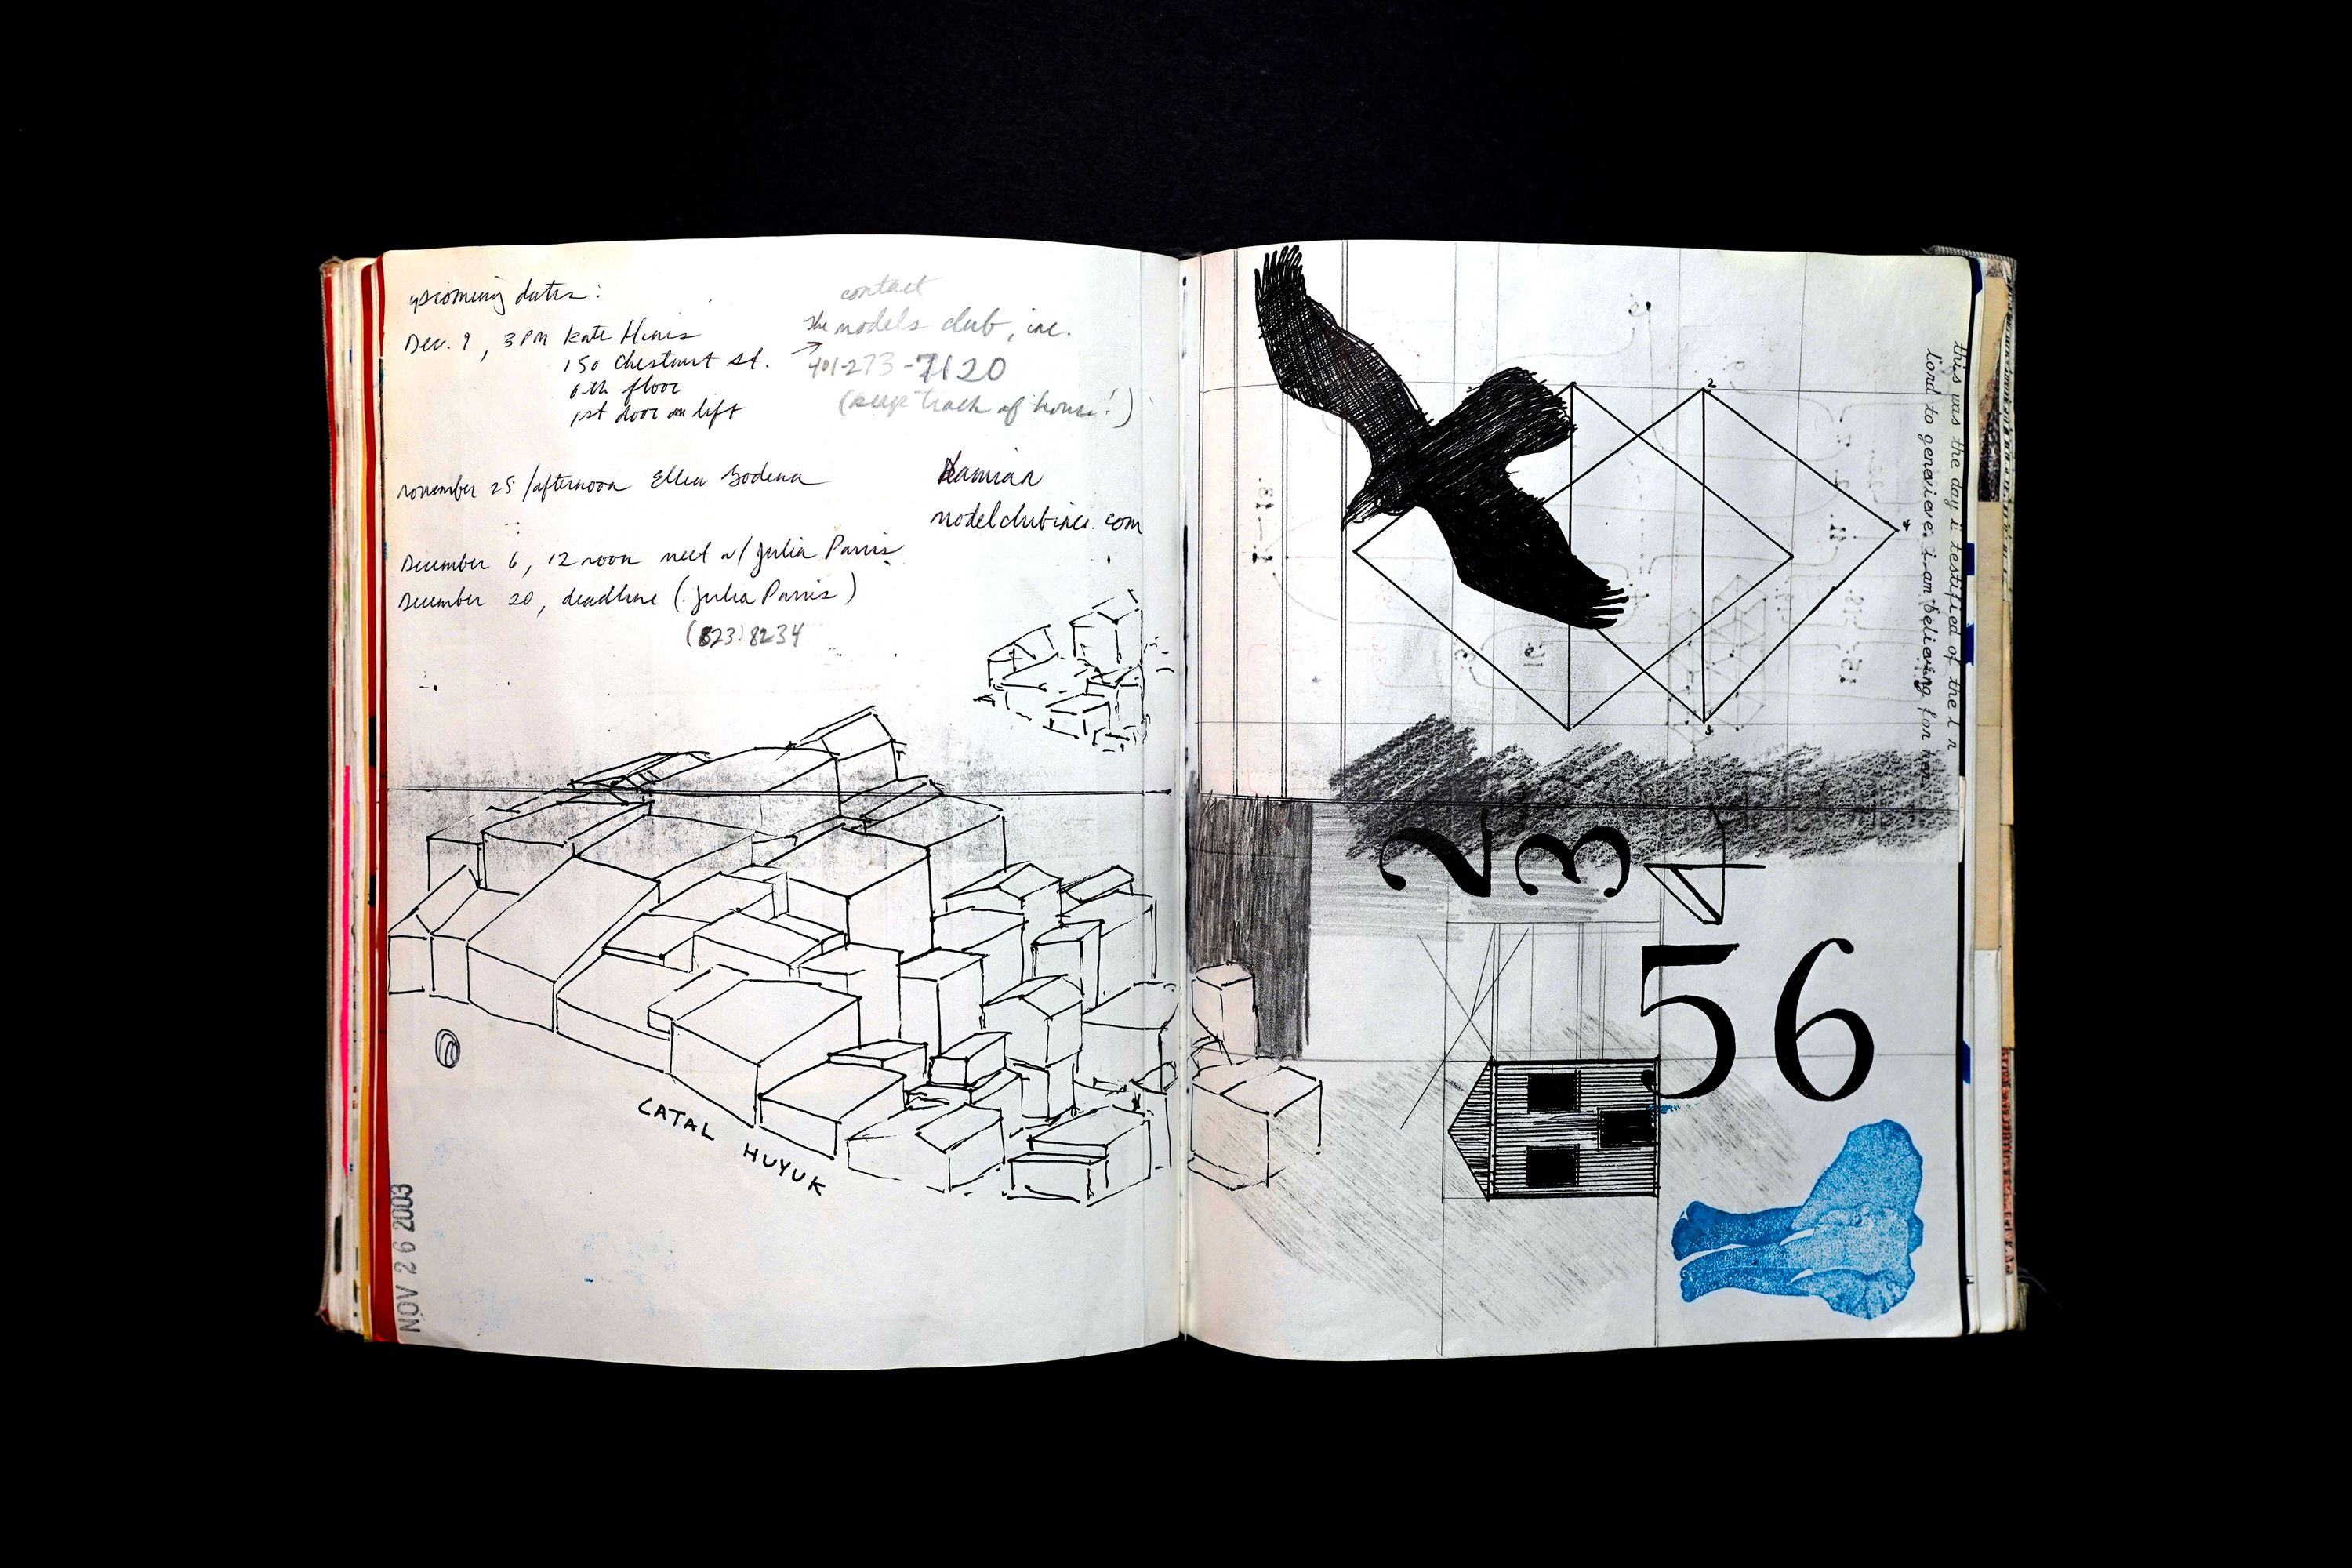 upcoming dates:
Dec. 9, 3 PM Kate
150 Chestnut St.
6th floor
1st door on lift
contact
the models club, inc.
401-273-7120
(keep track of hours!)
november 25 /afternoon Ellen
Damian
modelclubinc.com
December 6, 12 noon meet w/ Julia Parris
December 20, deadline (Julia Parris)
(823) 8234
CATAL HUYUK
NOV 26 2003
this was the day i testified of the l r
lord to genevieve. i am believing for her.
2
4
3
2
3
4
5 6